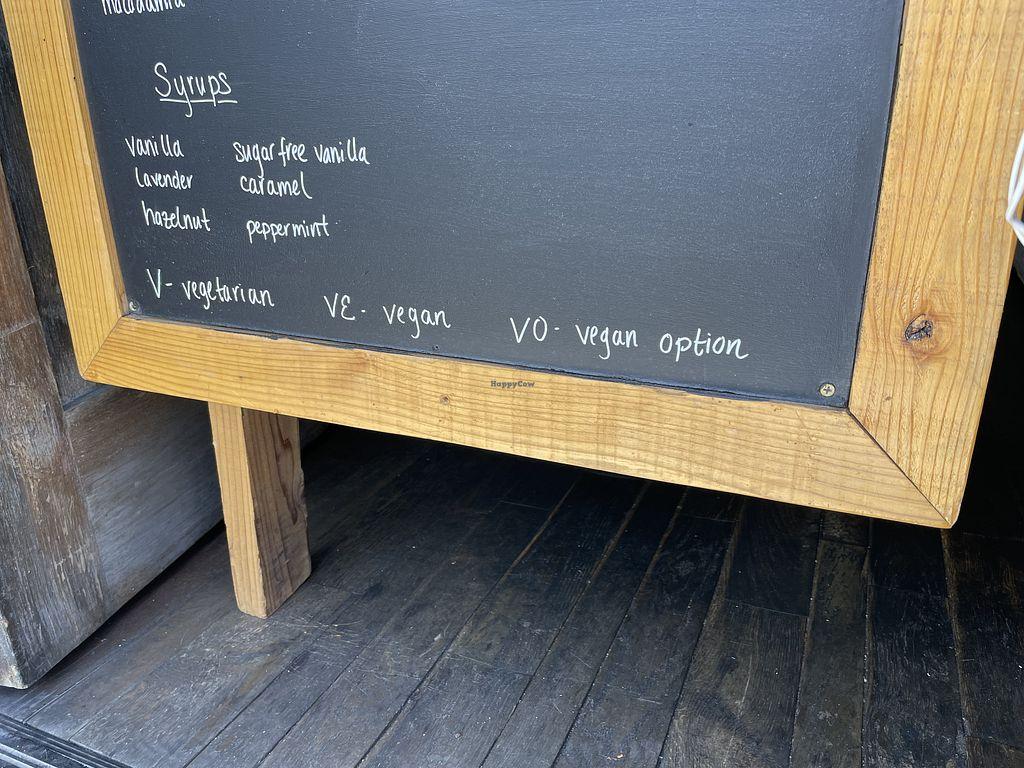 macadamia
Syrups
vanilla sugar free vanilla
lavender caramel
hazelnut peppermint
V- vegetarian VE- vegan VO- vegan option
HappyCow